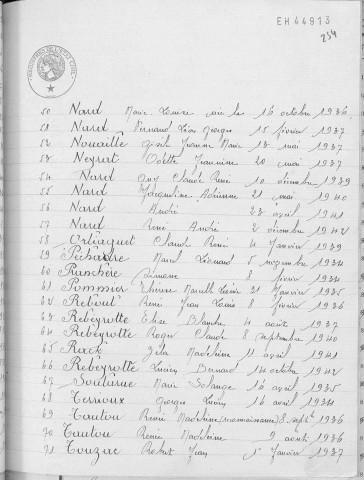 EH 44913
254
50 Nard Marie Louise née le 16 octobre 1936
51 Nard Fernand Léon Georges 15 février 1937
52 Nouaille Jeanne Marie 13 mai 1937
53 Neyrat Odette Jeannine 20 mai 1937
54 Nard Guy Claude René 10 décembre 1939
55 Nard Jacqueline Adrienne 21 mai 1940
56 Nard André 23 avril 1941
57 Nard René André 2 décembre 1942
58 Orliaguet Claude René 4 janvier 1939
59 Marcel Léonard 5 novembre 1934
60 Simone 8 février 1934
61 Pommier Thérèse 21 Janvier 1935
62 René Jean Louis 8 février 1936
63 Rebeyrotte Elise Blanche 4 août 1937
64 Rebeyrotte Roger Claude 8 septembre 1940
65 Madeleine 11 avril 1941
66 Rebeyrotte Lucien Bernard 14 octobre 1942
67 Marie Solange 16 avril 1935
68 Ternoux Georges 16 avril 1934
69 Tautou Renée Madeleine (reconnaissance) 8 septe 1936
70 Tautou Renée Madeleine 9 août 1936
71 Touzac Robert Jean 1er Janvier 1937